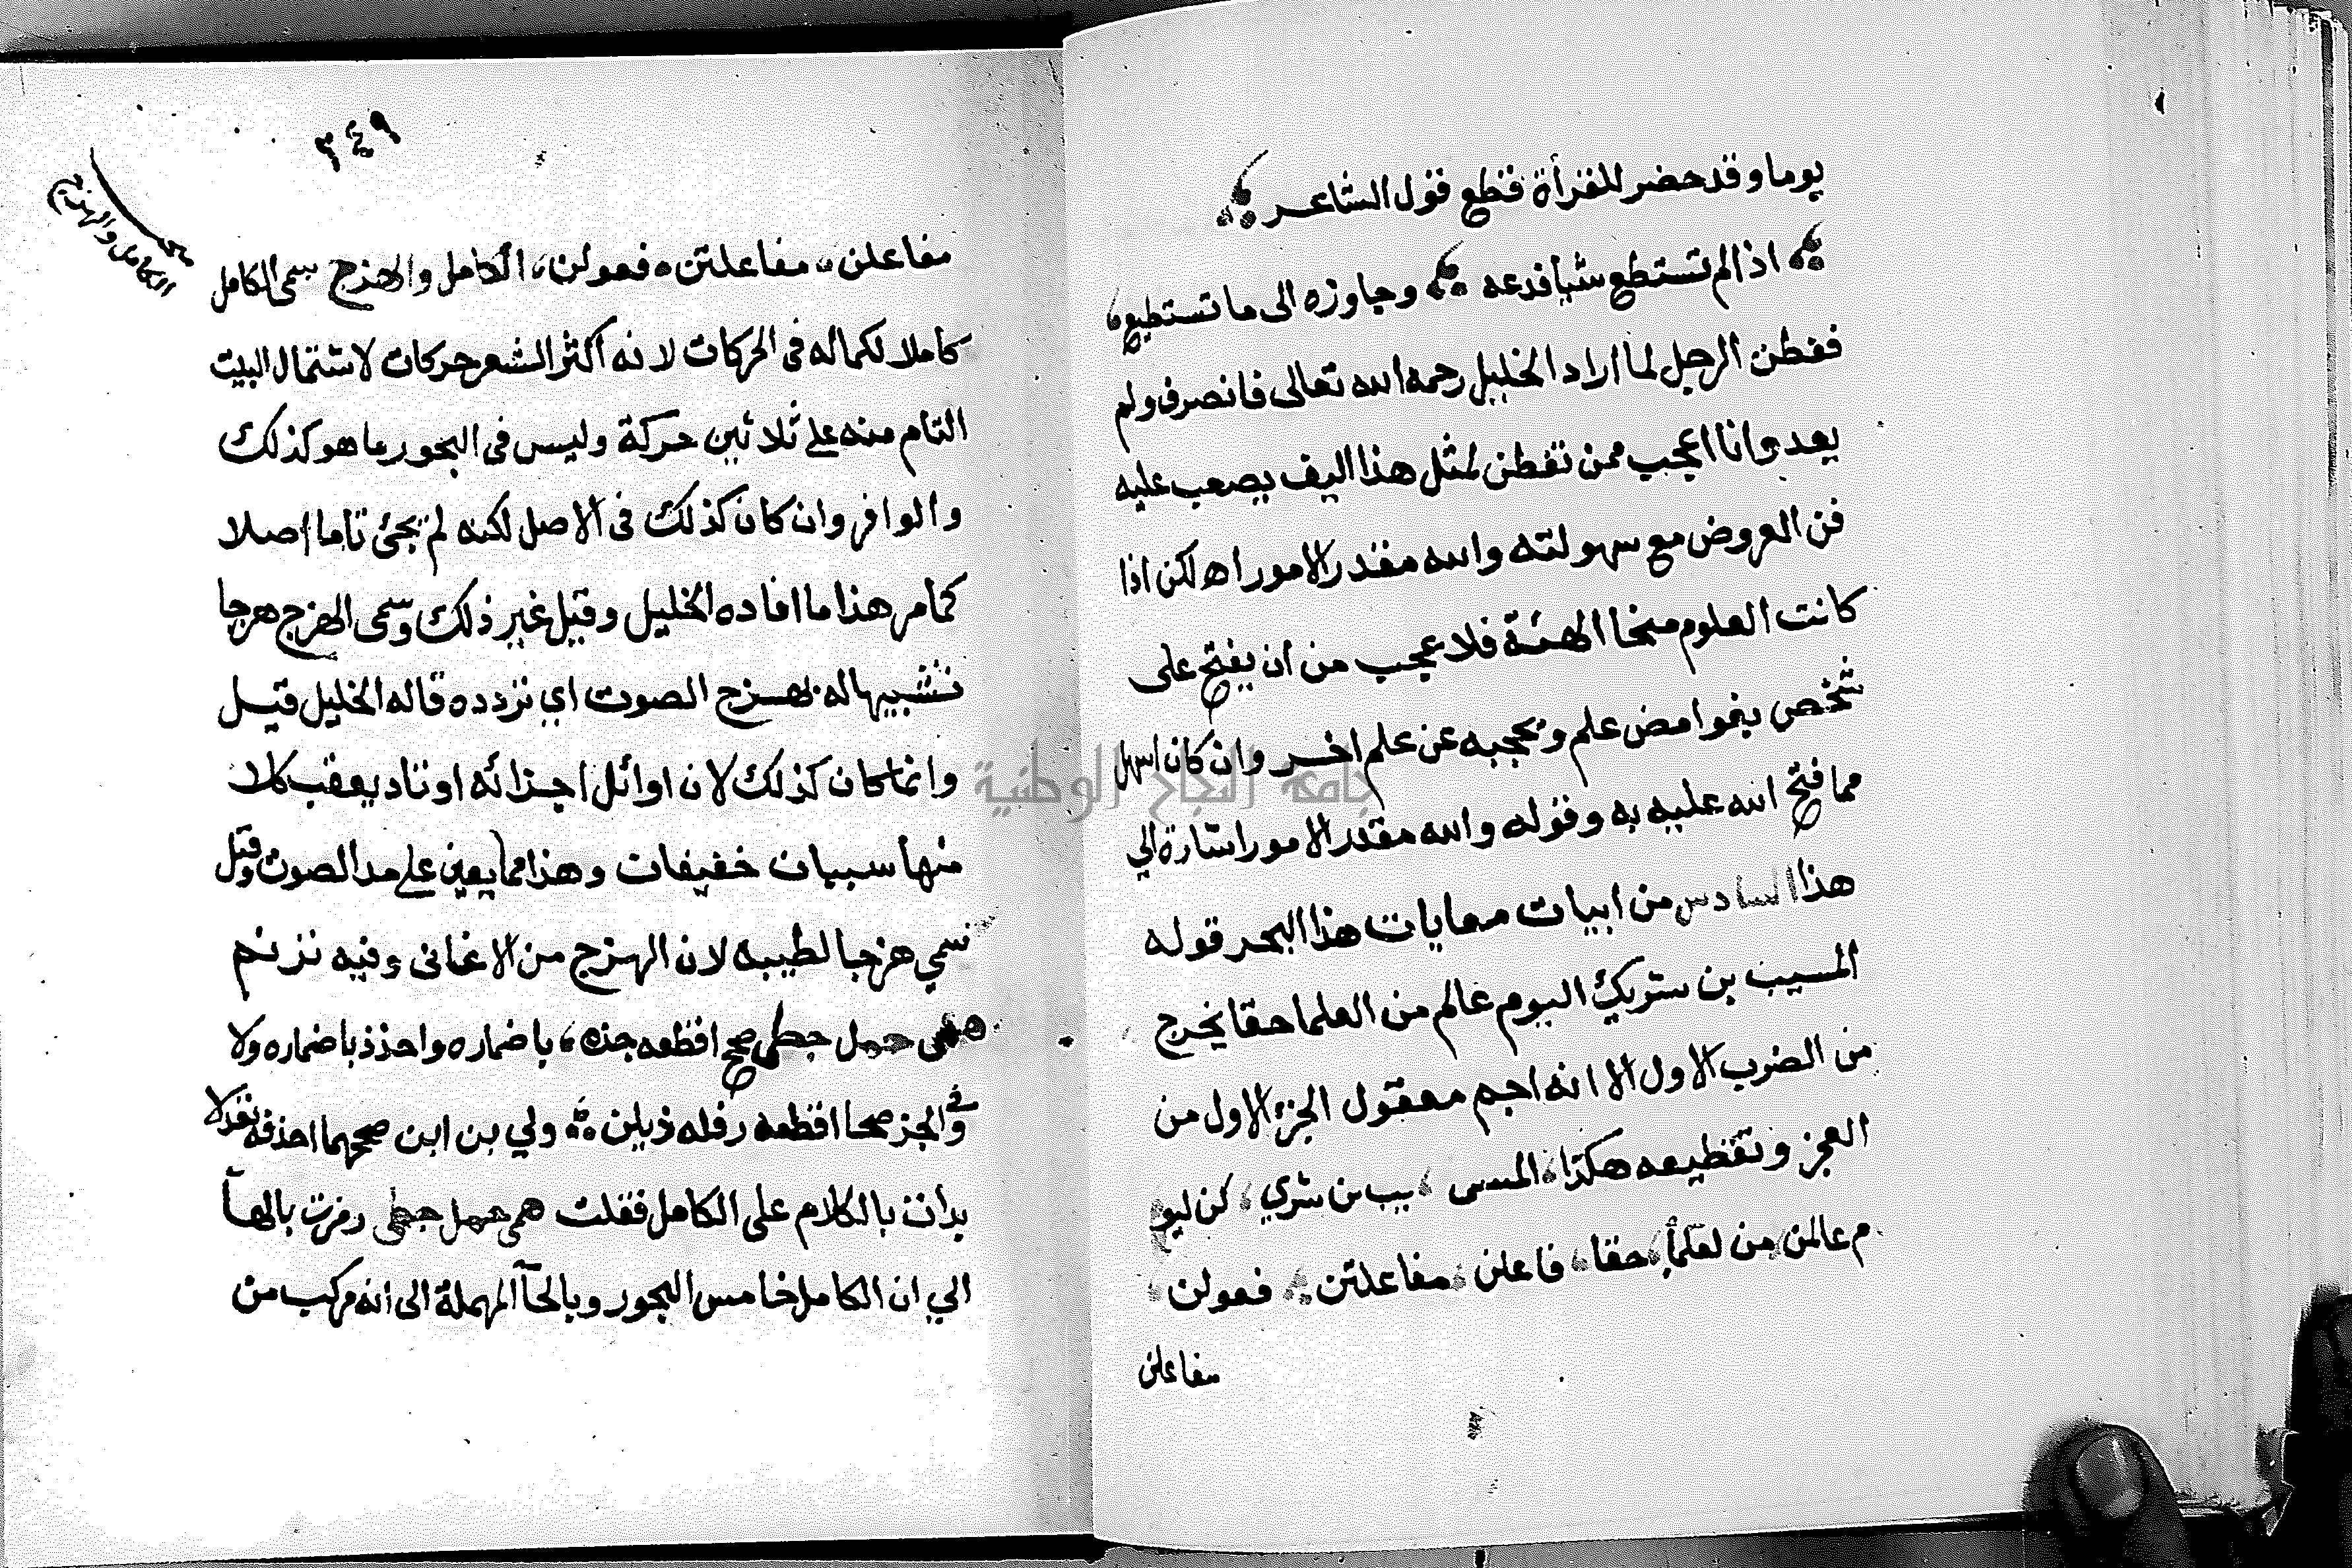 يوما وقد حضر للقرأة قطع قول الشاعر
اذا لم تستطع شيأ فدعه وجاوزه الى ما تستطيع
ففطن الرجل لما اراد الخليل رحمه الله تعالى فانصرف ولم
يعد وانا اعجب ممن تفطن لمثل هذا اليف يصعب عليه
فن العروض مع سهولته والله مقدر الامور اه لكن اذا
كانت العلوم منحا الهية فلا عجب من ان يفتح على
شخص بغوامض علم ويحجبه عن علم اخر وان كان اسهل
مما فتح الله عليه به وقوله والله مقدر الامور اشارة الي
هذا السادس من ابيات معايات هذا البحر قوله
المسيب بن شريك اليوم عالم من العلما حقا يخرج
من الضرب الاول الا انه اجم معقول الجزء الاول من
العجز وتقطيعه هكذا، المسى، يب بن شري، كن ليو
م عالمن، من لعلمأ، حقا، فاعلن، مفاعلتن، فعولن،
مفاعلن
٣٤٩
الكامل والهزج
مفاعلن، مفاعلتن، فعولن، الكامل والهزج سمى الكامل
كاملا لكماله فى الحركات لانه أكثر الشعر حركات لاشتمال البيت
التام منه على ثلاثين حركة وليس فى البحور ما هو كذلك
والوافر وان كان كذلك فى الاصل لكنه لم يجئ تاما اصلا
كمامر هذا ما افاده الخليل وقيل غير ذلك وسمى الهزج هزجا
تشبيها له بهزج الصوت اي تردده قاله الخليل قيل
وانما كان كذلك لان اوائل اجزائه اوتاد يعقب كلا
منها سببان خفيفات وهذا مما يعين على مد الصوت وقيل
سمي هزجا لطيبه لان الهزج من الاغانى وفيه ترنم
همى حمل جطى صح اقطعه جذه، باضماره واحذذ باضماره ولا
وفي الجز صحا اقطعه رفله ذيلن ولي بن ابن صحهما احذفه تفزلا
بدات بالكلام على الكامل فقلت همى حمل جطى رمزت بالهآ
الي ان الكامل خامس البحور وبالحآ المهملة الى انه مركب من